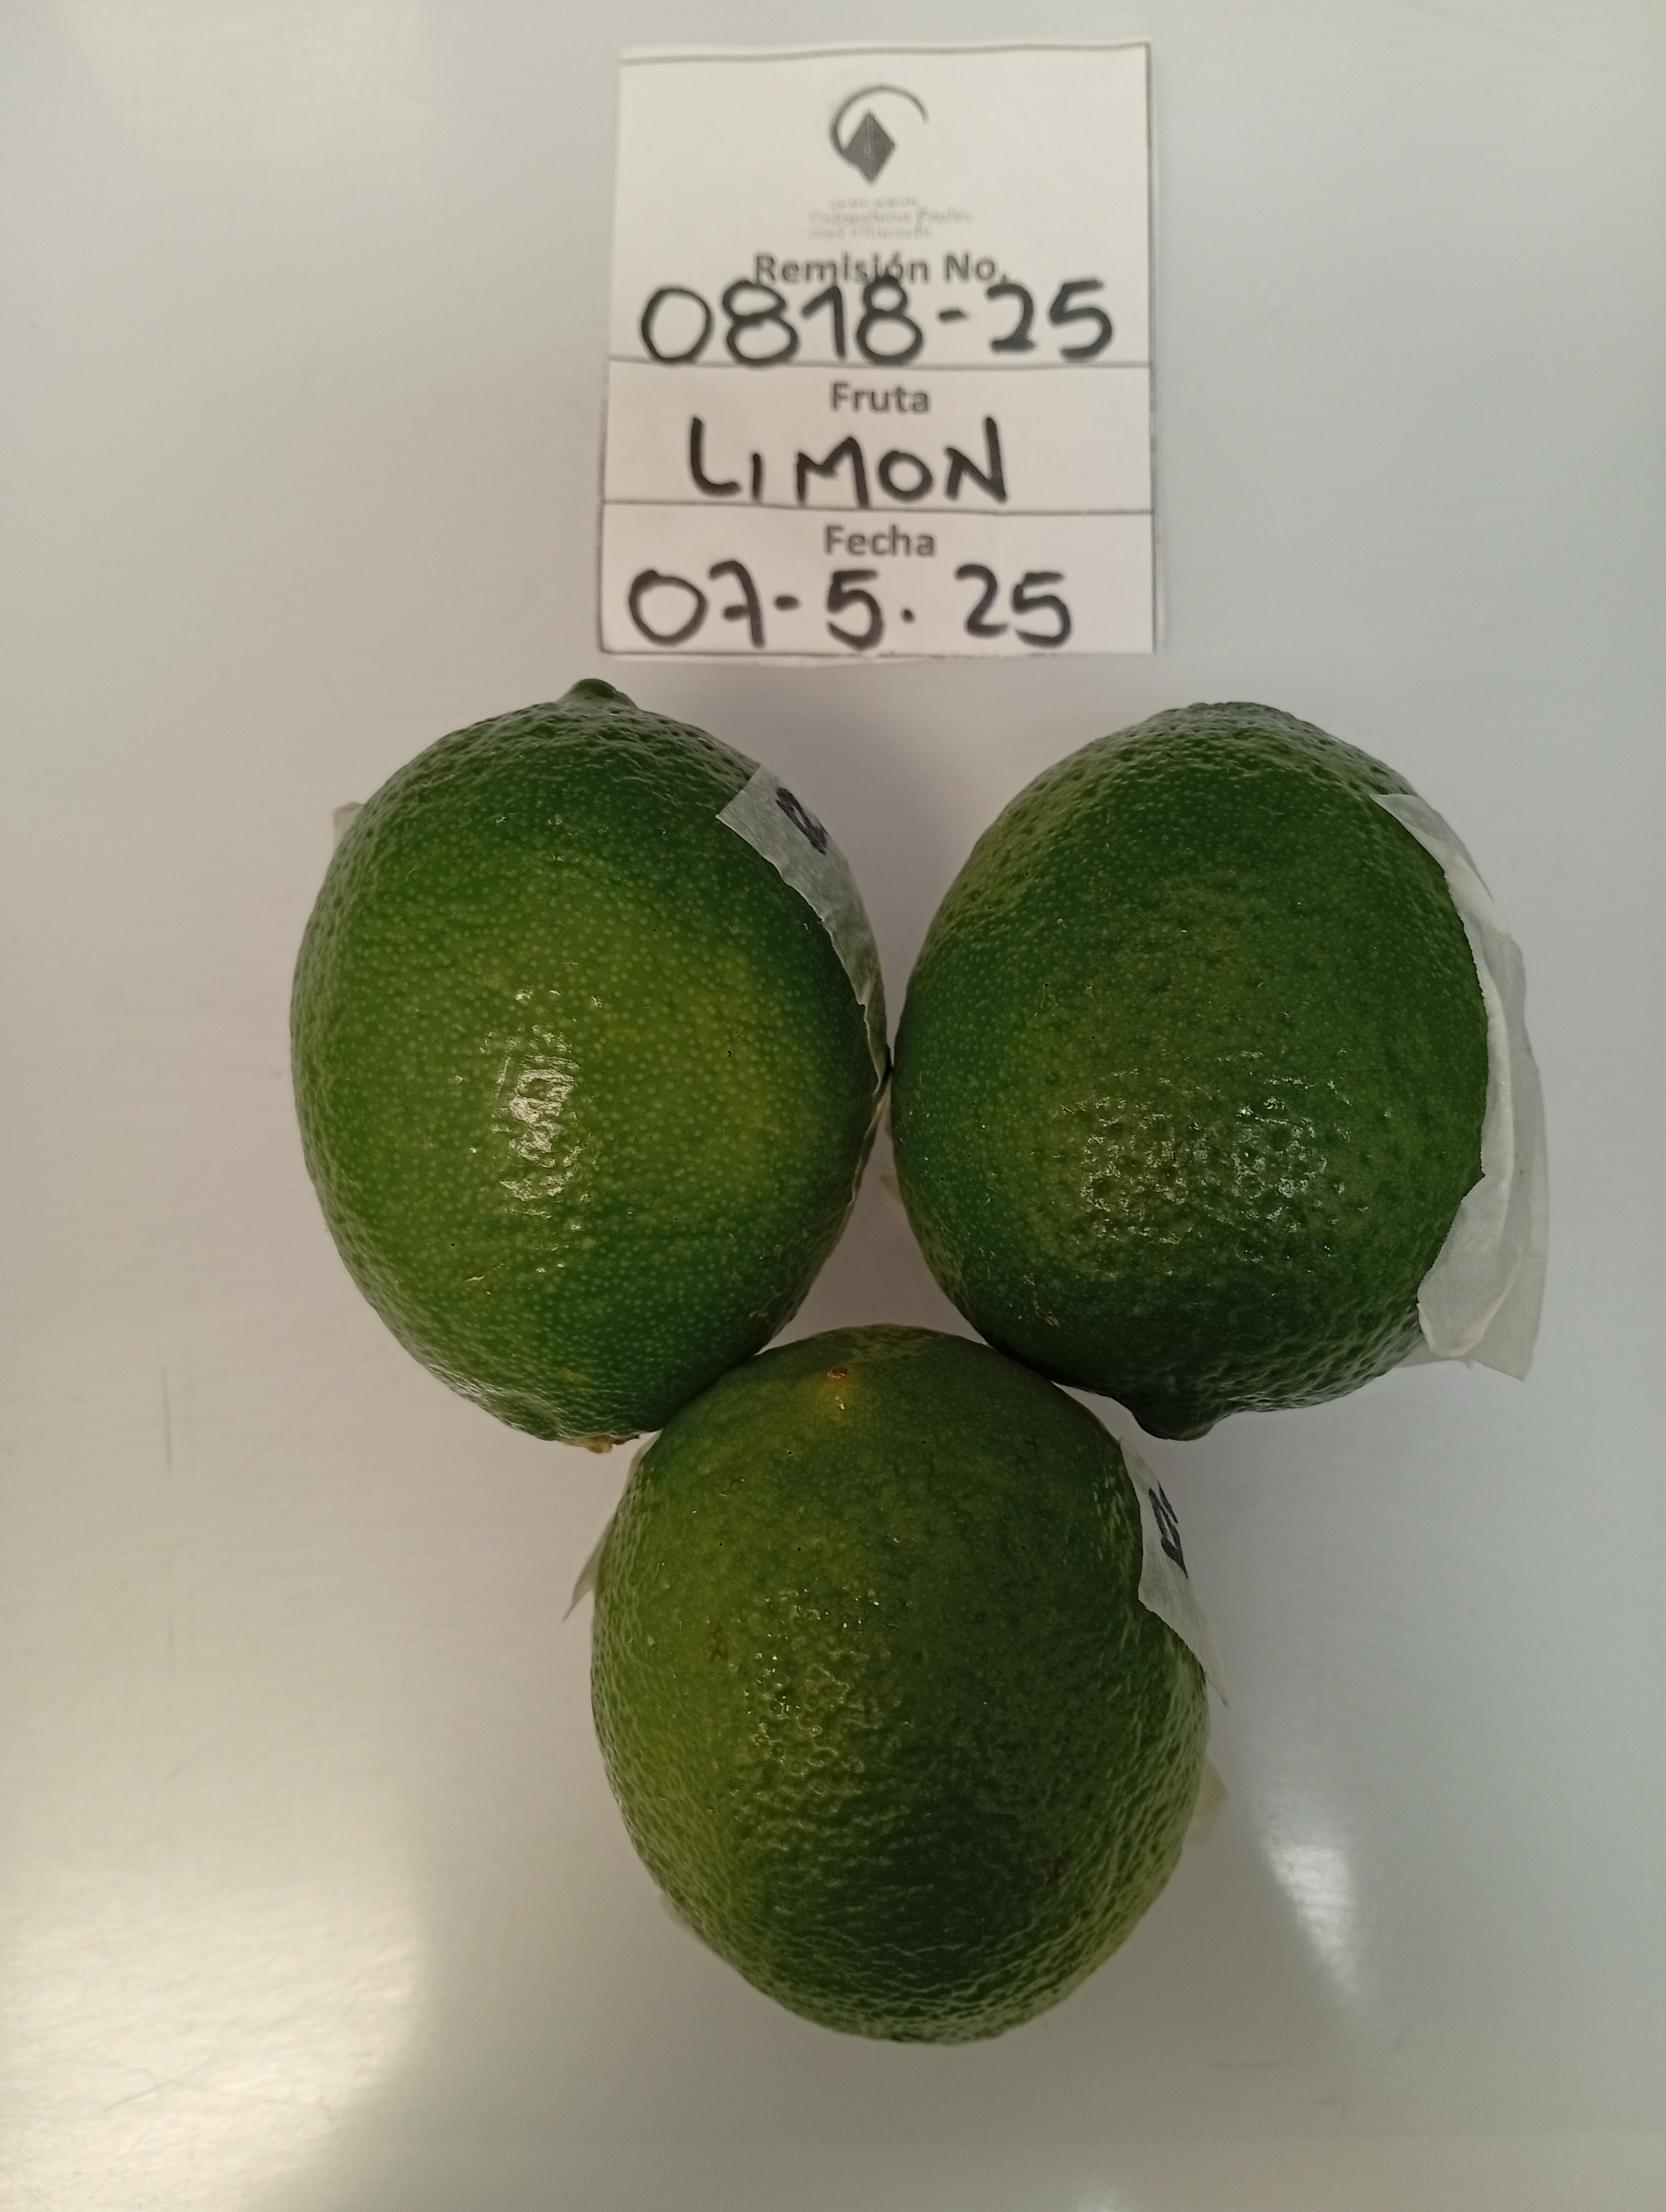 Remisión No.
0818-25
Fruta
LIMON
Fecha
07-5.25